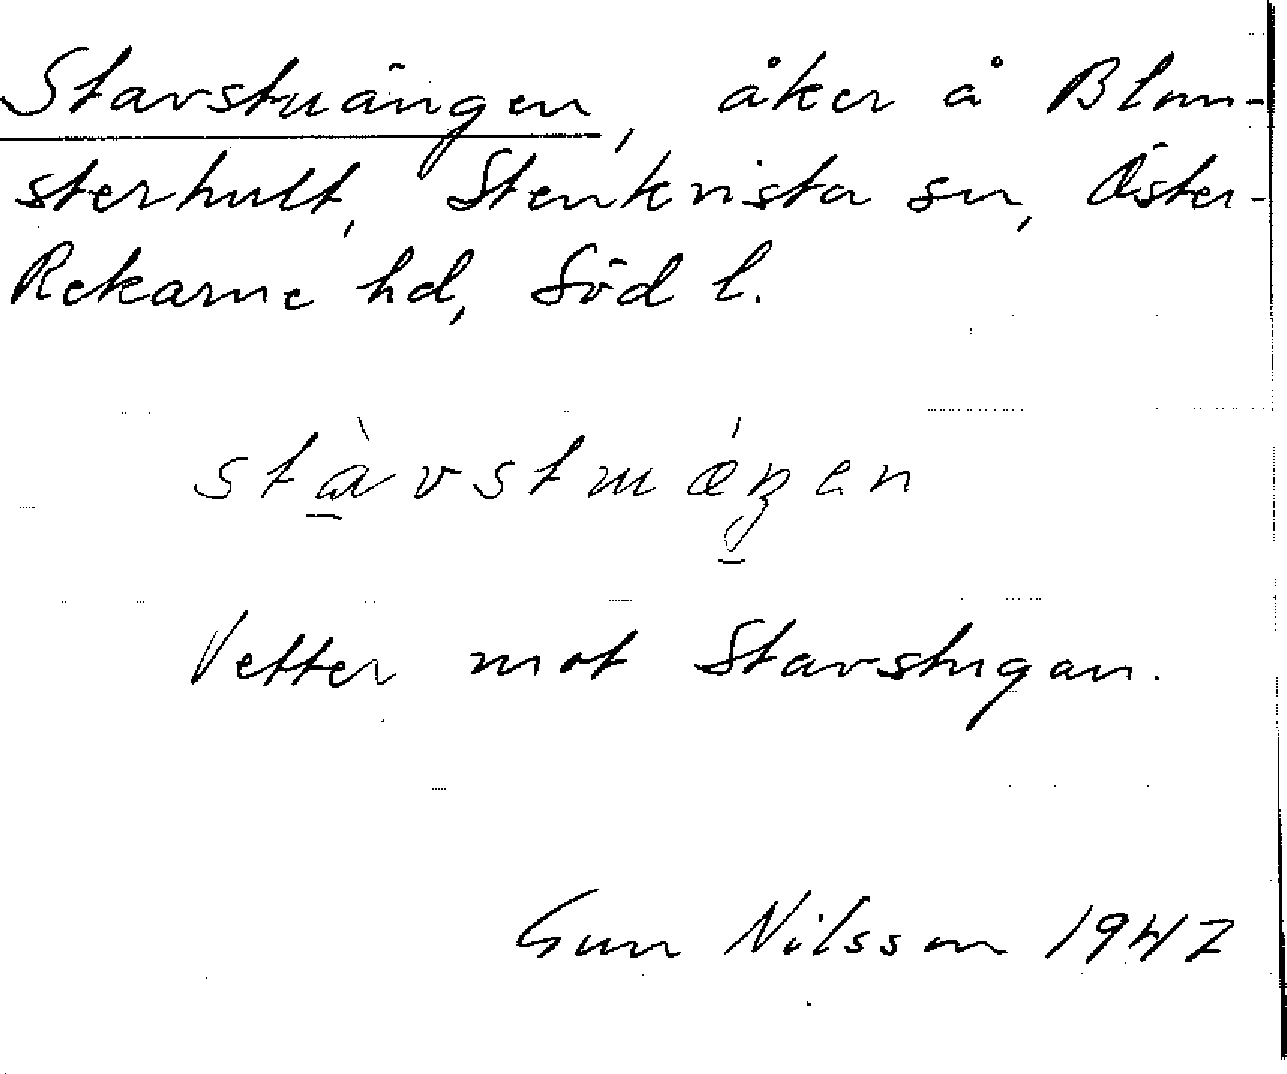 Stavstuängen, åker å Blom-
sterhult, Stenkvista sn, Öster-
Rekarne hd, Söd l.
Vetter mot Stavstugan.
Gun Nilsson 1947